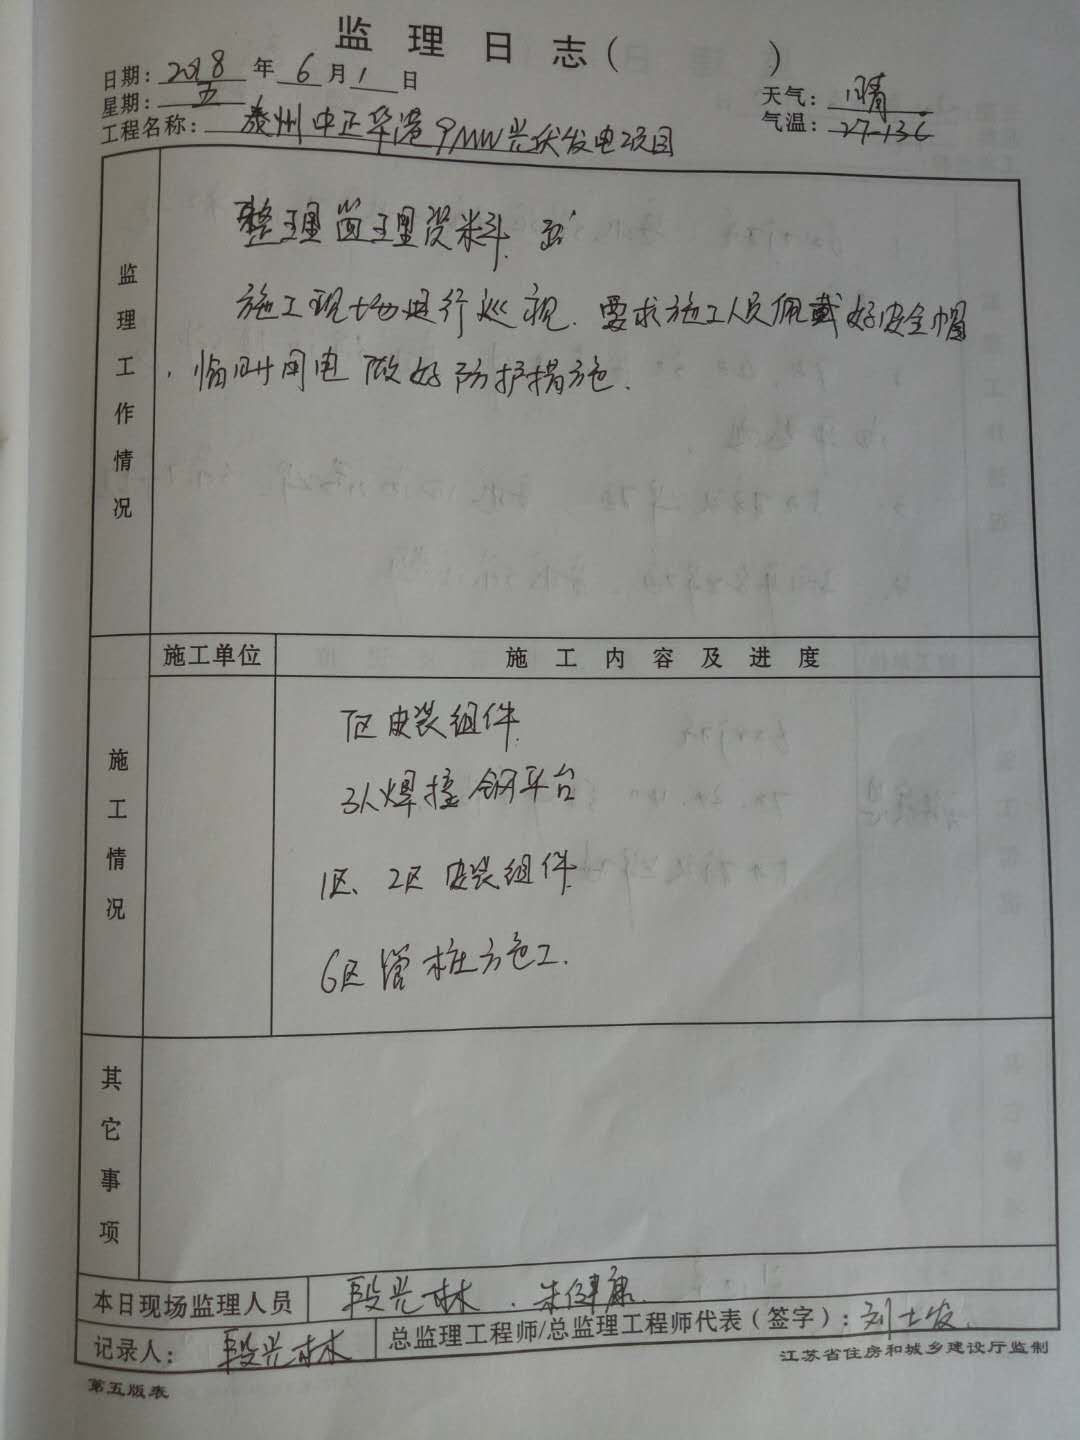 监理日志(   )
日期: 2018 年 6 月 1 日
星期: 五
天气: 晴
工程名称: 泰州中正华港9MW光伏发电项目
气温: 27-13℃
监理工作情况
整理监理资料.
施工现场进行巡视. 要求施工人员佩戴好安全帽
, 临时用电 做好防护措施.
施工单位
施工内容及进度
施工情况
7区 安装组件.
3人焊接钢平台
1区、2区 安装组件.
6区管桩施工.
其它事项
本日现场监理人员 段光林 . 朱健康
记录人: 段光林 总监理工程师/总监理工程师代表(签字):
江苏省住房和城乡建设厅监制
第五版表